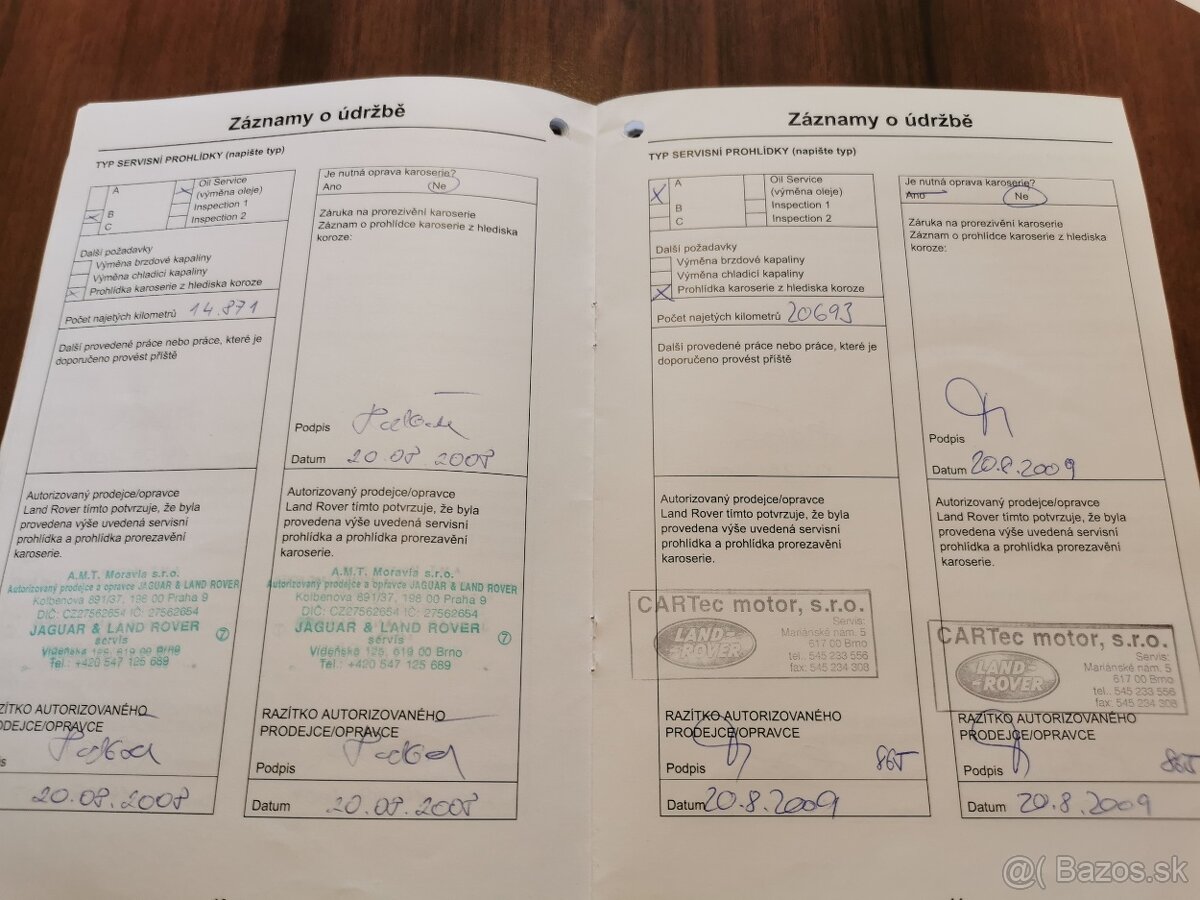 Záznamy o údržbě
TYP SERVISNÍ PROHLÍDKY (napište typ)
A
B
C
Oil Service
(výměna oleje)
Inspection 1
Inspection 2
Další požadavky
Výměna brzdové kapaliny
Výměna chladicí kapaliny
Prohlídka karoserie z hlediska koroze
Počet najetých kilometrů 14.871
Další provedené práce nebo práce, které je
doporučeno provést příště
Je nutná oprava karoserie?
Ano Ne
Záruka na prorezivění karoserie
Záznam o prohlídce karoserie z hlediska
koroze:
Podpis
Datum 20.08.2008
Autorizovaný prodejce/opravce
Land Rover tímto potvrzuje, že byla
provedena výše uvedená servisní
prohlídka a prohlídka prorezavění
karoserie.
A.M.T. Moravia s.r.o.
Autorizovaný prodejce a opravce JAGUAR & LAND ROVER
Kolbenova 891/37, 198 00 Praha 9
DIČ: CZ27562654 IČ: 27562654
JAGUAR & LAND ROVER
servis 7
Vídeňská 125, 619 00 Brno
Tel.: +420 547 125 689
ZÍTKO AUTORIZOVANÉHO
ODEJCE/OPRAVCE
20.08.2008
Autorizovaný prodejce/opravce
Land Rover tímto potvrzuje, že byla
provedena výše uvedená servisní
prohlídka a prohlídka prorezavění
karoserie.
A.M.T. Moravia s.r.o.
Autorizovaný prodejce a opravce JAGUAR & LAND ROVER
Kolbenova 891/37, 198 00 Praha 9
DIČ: CZ27562654 IČ: 27562654
JAGUAR & LAND ROVER
servis 7
Vídeňská 125, 619 00 Brno
Tel.: +420 547 125 689
RAZÍTKO AUTORIZOVANÉHO
PRODEJCE/OPRAVCE
Podpis
Datum 20.08.2008
Záznamy o údržbě
TYP SERVISNÍ PROHLÍDKY (napište typ)
A
B
C
Oil Service
(výměna oleje)
Inspection 1
Inspection 2
Další požadavky
Výměna brzdové kapaliny
Výměna chladicí kapaliny
Prohlídka karoserie z hlediska koroze
Počet najetých kilometrů 20693
Další provedené práce nebo práce, které je
doporučeno provést příště
Je nutná oprava karoserie?
Ano Ne
Záruka na prorezivění karoserie
Záznam o prohlídce karoserie z hlediska
koroze:
Podpis
Datum 20.8.2009
Autorizovaný prodejce/opravce
Land Rover tímto potvrzuje, že byla
provedena výše uvedená servisní
prohlídka a prohlídka prorezavění
karoserie.
CARTec motor, s.r.o.
LAND-
-ROVER
Servis:
Mariánské nám. 5
617 00 Brno
tel.: 545 233 556
fax: 545 234 308
RAZÍTKO AUTORIZOVANÉHO
PRODEJCE/OPRAVCE
Podpis
Datum 20.8.2009
Autorizovaný prodejce/opravce
Land Rover tímto potvrzuje, že byla
provedena výše uvedená servisní
prohlídka a prohlídka prorezavění
karoserie.
CARTec motor, s.r.o.
LAND-
-ROVER
Servis:
Mariánské nám. 5
617 00 Brno
tel.: 545 233 556
fax: 545 234 308
RAZÍTKO AUTORIZOVANÉHO
PRODEJCE/OPRAVCE
Podpis
Datum 20.8.2009
@( Bazos.sk